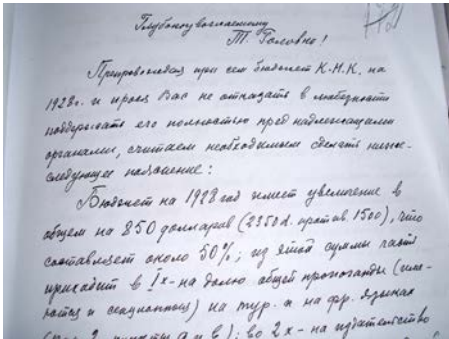 Глубокоуважаемому
Т. Головне!
Препровождая при сем бюджет К.Н.К. на
1928 г. и прося Вас не отказать в любезности
поддержать его полностью пред надлежащими
органами, считаем необходимым сделать ниже-
следующее пояснение:
Бюджет на 1928 год имеет увеличение в
общем на 850 долларов (2350 d. против 1500), что
составляет около 50%; из этой суммы часть
приходит в Iх - на долю общей пропоганды (
и секционной) на тур. и на фр. языках
пункты а и в); во 2х - на издательство